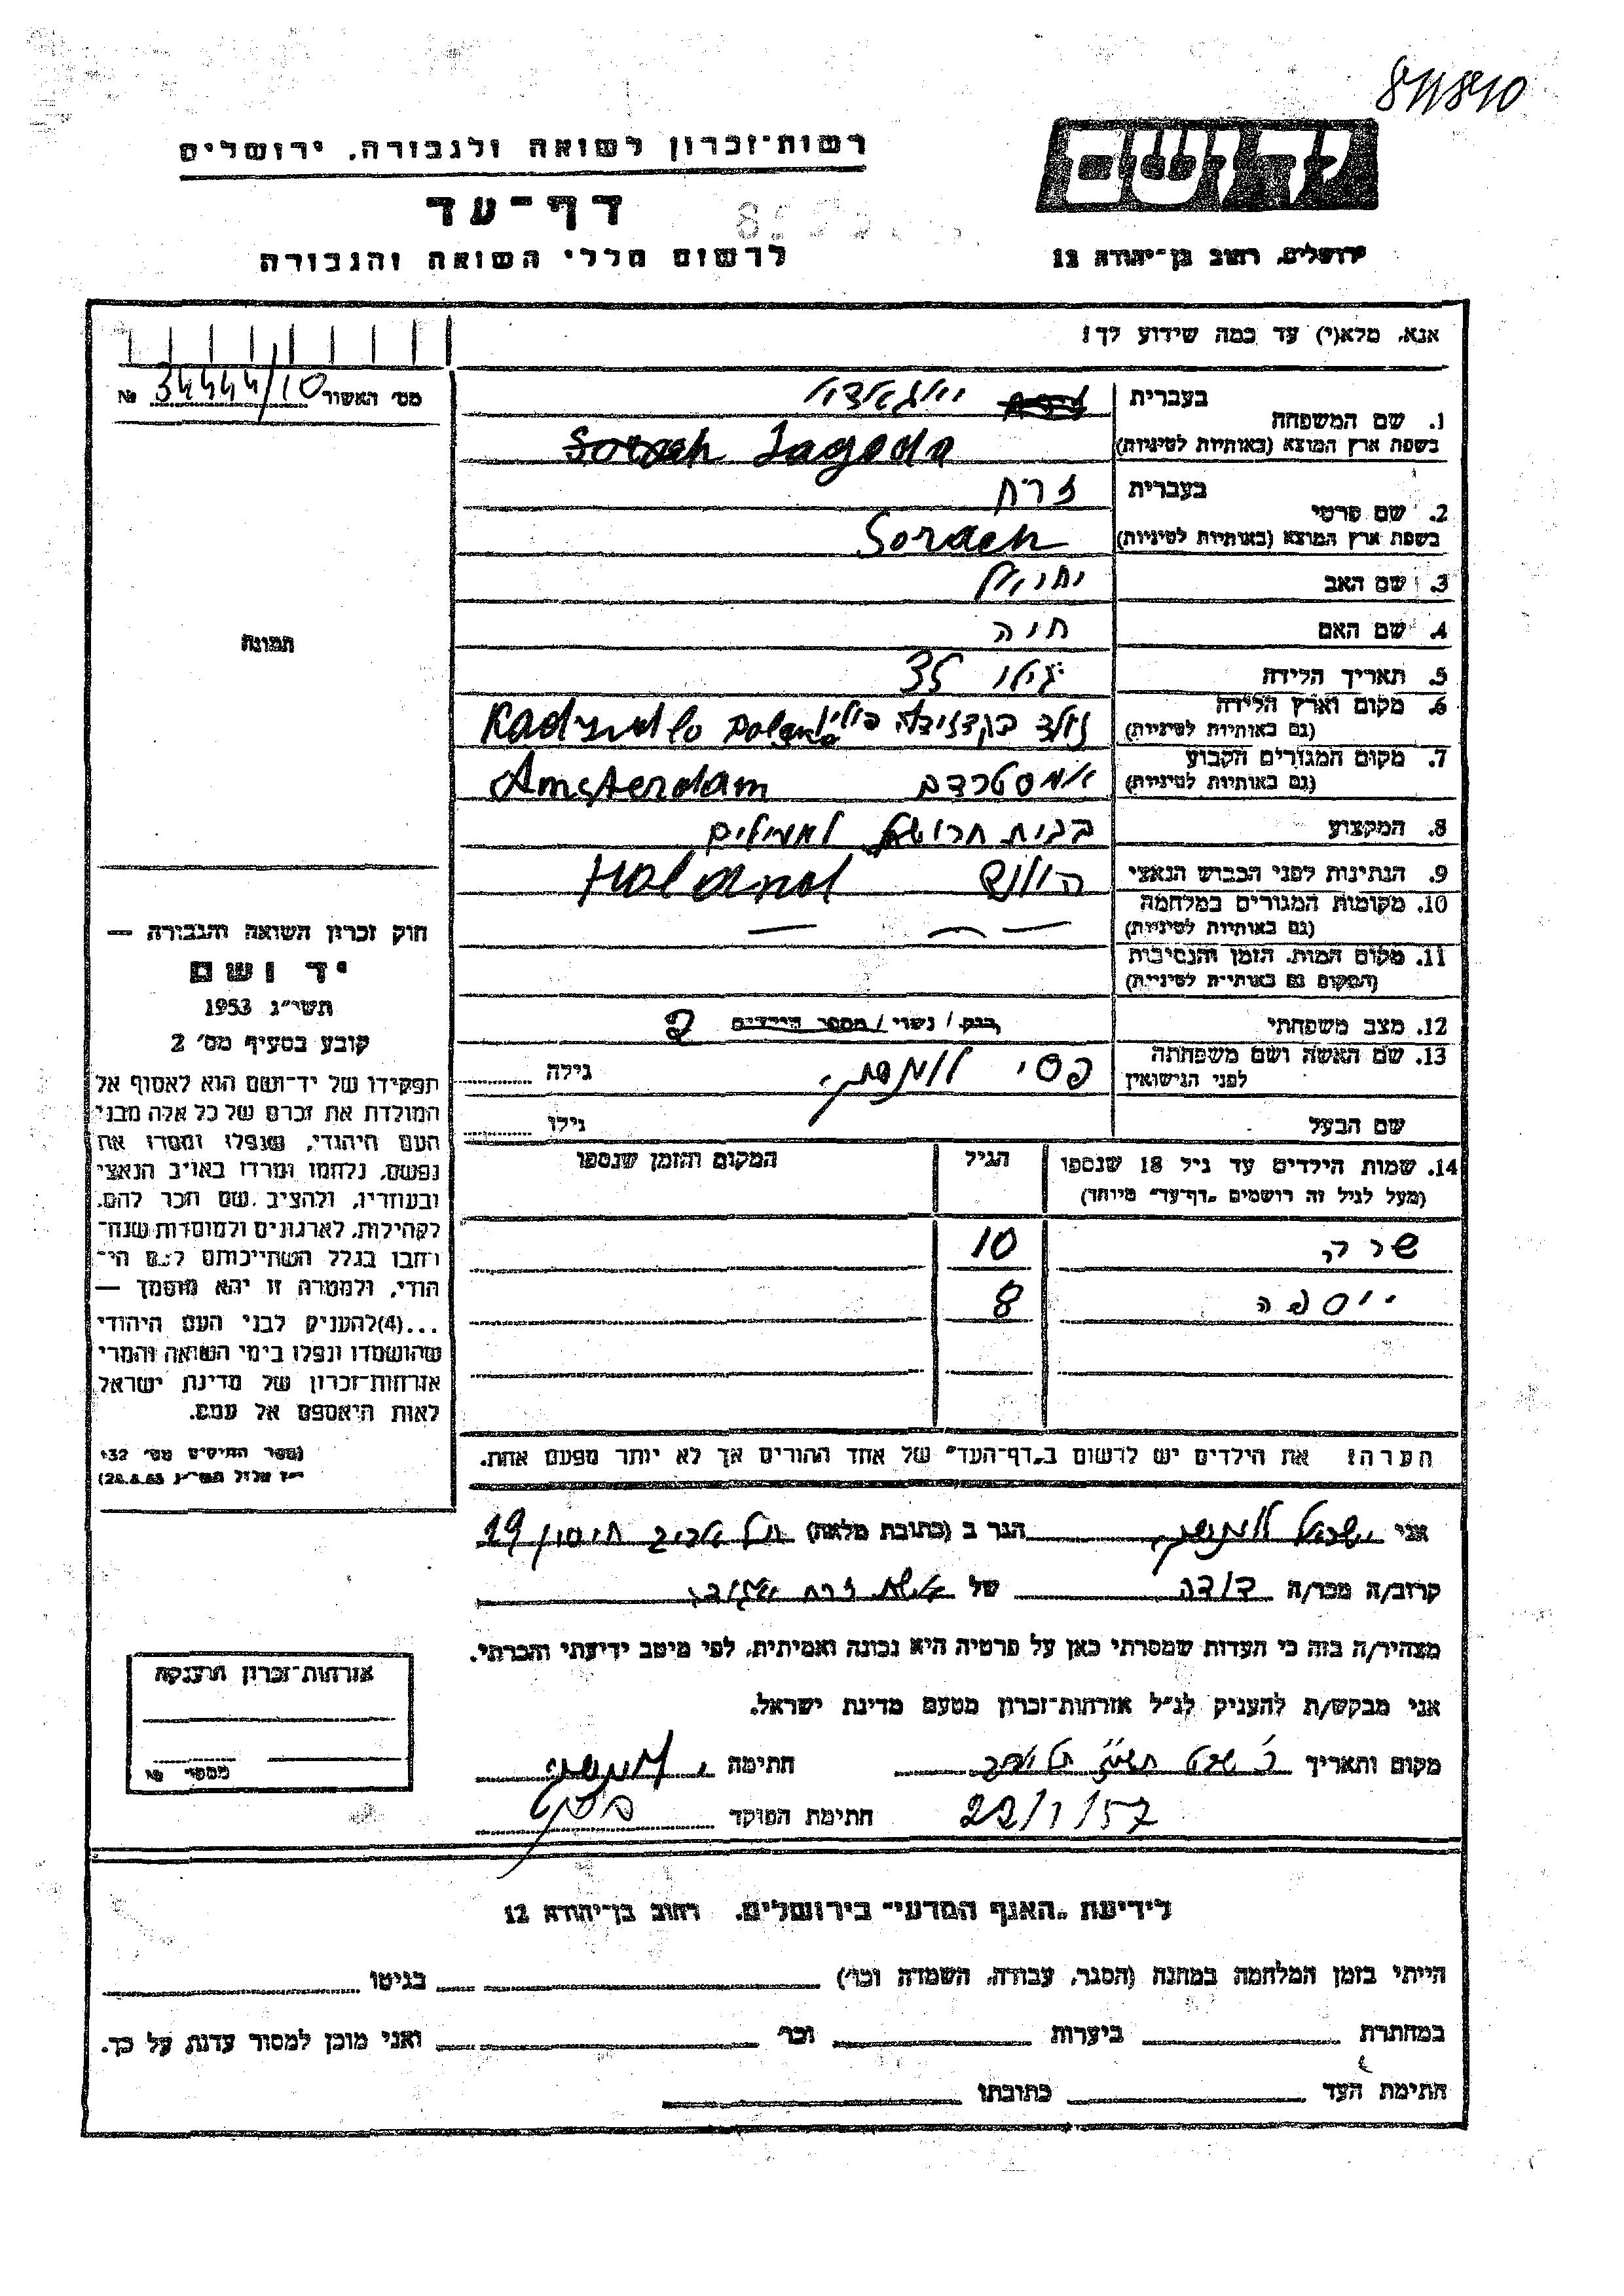 811810
רשות־זכרון לשואה ולגבורה, ירושלים
יד ושם
דף־עד
לרשום חללי השואה והגבורה
ירושלים, רחוב בן־יהודה 12
אנא, מלא(י) עד כמה שידוע לך!
מס׳ האשור 34444/10 №
1. שם המשפחה
בעברית
בשפת ארץ המוצא (באותיות לטיניות) Sorach Jagoda
2. שם פרטי
בעברית זרח
בשפת ארץ המוצא (באותיות לטיניות) Sorach
3. שם האב
4. שם האם חיה
5. תאריך הלידה גילו 35
6. מקום וארץ הלידה
(גם באותיות לטיניות) נולד פולין Poland
7. מקום המגורים הקבוע
(גם באותיות לטיניות) אמסטרדם Amsterdam
8. המקצוע בבית חרושת למעילים
9. הנתינות לפני הכבוש הנאצי הולנד Holand
10. מקומות המגורים במלחמה
(גם באותיות לטיניות) — — —
11. מקום המות, הזמן והנסיבות
(המקום גם באותיות לטיניות)
12. מצב משפחתי רווק / נשוי / מספר הילדים 2
13. שם האשה ושם משפחתה
לפני הנישואין פסי גילה
שם הבעל גילו
14. שמות הילדים עד גיל 18 שנספו
(מעל לגיל זה רושמים „דף־עד״ מיוחד)
הגיל
המקום והזמן שנספו
שרה 10
יוספה 8
הערה: את הילדים יש לרשום ב„דף־העד״ של אחד ההורים אך לא יותר מפעם אחת.
תמונה
חוק זכרון השואה והגבורה —
יד ושם
תשי״ג 1953
קובע בסעיף מס׳ 2
תפקידו של יד־ושם הוא לאסוף אל
המולדת את זכרם של כל אלה מבני
העם היהודי, שנפלו ומסרו את
נפשם, נלחמו ומרדו באויב הנאצי
ובעוזריו, ולהציב שם וזכר להם,
לקהילות, לארגונים ולמוסדות שנח־
רבו בגלל השתייכותם לעם הי־
הודי, ולמטרה זו יהא מוסמך —
...(4)להעניק לבני העם היהודי
שהושמדו ונפלו בימי השואה והמרי
אזרחות־זכרון של מדינת ישראל
לאות היאספם אל עמם.
(ספר החוקים מס׳ 132
אני ישראל הגר ב (כתובת מלאה) תל אביב 29
קרוב/ה מכר/ה דודה של אשת זרח
מצהיר/ה בזה כי העדות שמסרתי כאן על פרטיה היא נכונה ואמיתית, לפי מיטב ידיעתי והכרתי.
אני מבקש/ת להעניק לנ״ל אזרחות־זכרון מטעם מדינת ישראל.
מקום ותאריך כ׳ שבט תל אביב חתימה
22/1/57 חתימת הפוקד
אזרחות־זכרון הוענקה
מספר №
לידיעת „האגף המדעי״ בירושלים, רחוב בן־יהודה 12
הייתי בזמן המלחמה במחנה (הסגר, עבודה, השמדה וכו׳) בגיטו
במחתרת ביערות וכו׳ ואני מוכן למסור עדות על כך.
חתימת העד כתובתו